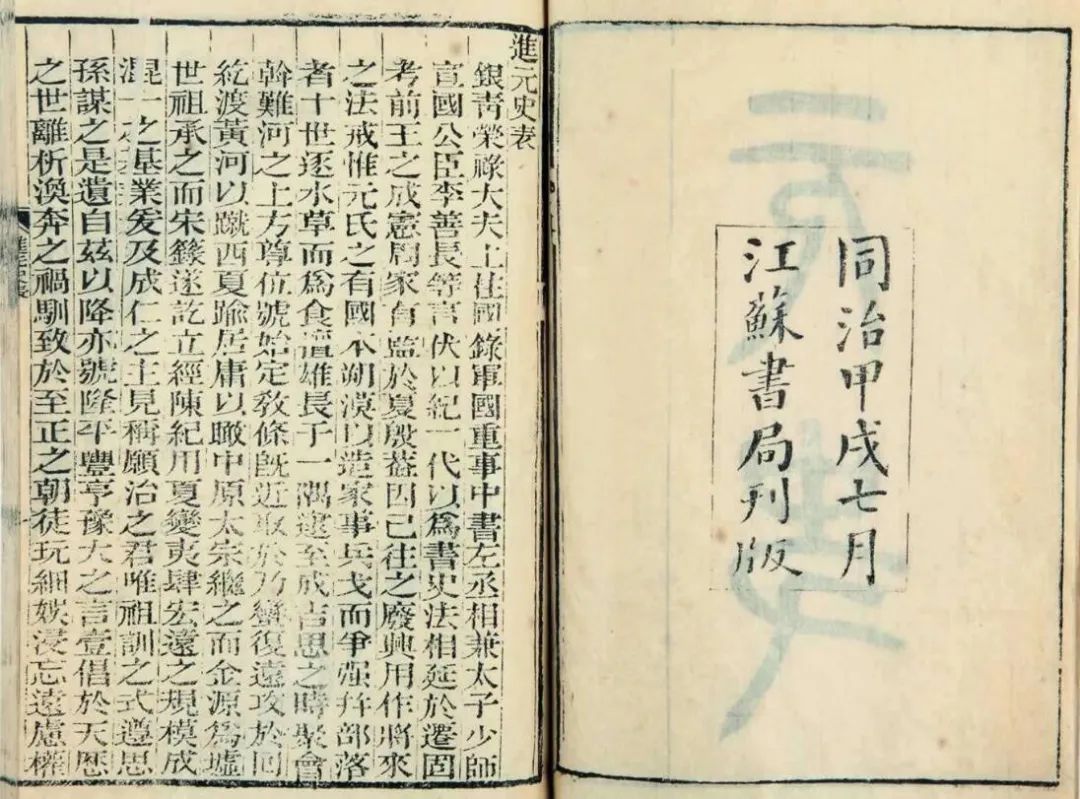 同治甲戌七月
江蘇書局刊版
進元史表
銀青榮祿大夫上柱國錄軍國重事中書左丞相兼太子少師
宣國公臣李善長等言伏以紀一代以爲書史法相延於遷固
考前王之成憲周家有監於夏殷葢因已往之廢興用作將來
之法戒惟元氏之有國本朔漠以造家事兵戈而爭强幷部落
者十世逐水草而爲食擅雄長于一隅逮至成吉思之時聚會
斡難河之上方尊位號始定敎條旣近取於乃蠻復遠攻於回
紇渡黃河以蹴西夏踰居庸以瞰中原太宗繼之而金源爲墟
世祖承之而宋籙遂訖立經陳紀用夏變夷肆宏遠之規模成
混一之基業爰及成仁之主見稱願治之君唯祖訓之式遵思
孫謀之是遺自茲以降亦號隆平豐亨豫大之言壹倡於天厯
之世離析渙奔之禍馴致於至正之朝徒玩細娛浸忘遠慮權